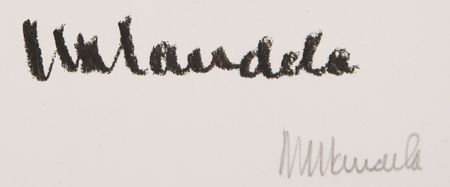 NMandela
NRMandela